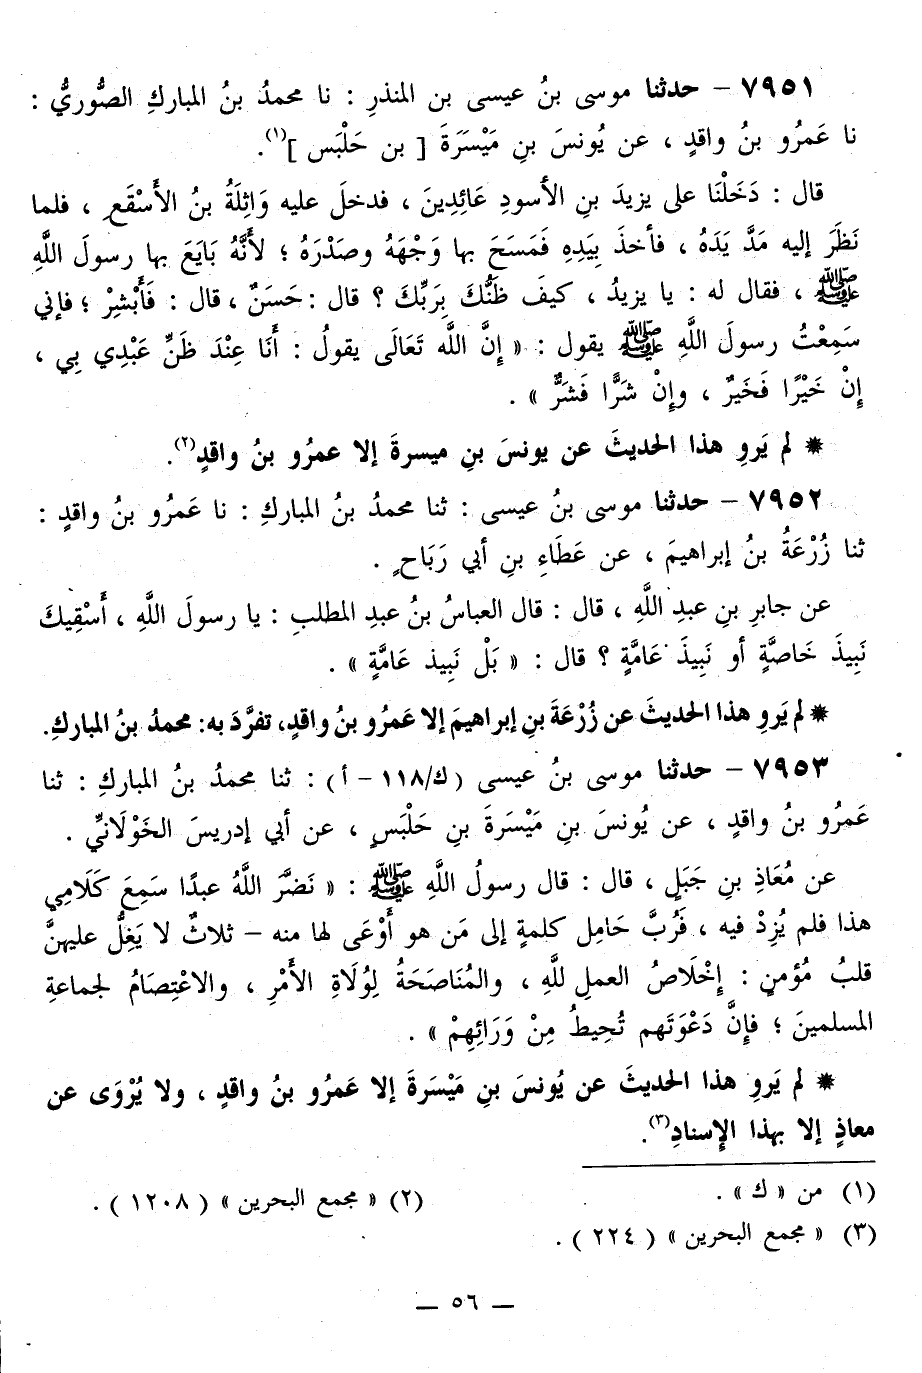 ٧٩٥١ – حدثنا موسى بنُ عيسى بن المنذرِ : نا محمدُ بنُ المباركِ الصُّوريُّ :
نا عَمرُو بنُ واقدٍ ، عن يُونسَ بنِ مَيْسَرَةَ [ بن حَلْبَس ](١).
قال : دَخَلْنَا على يزيدَ بنِ الأسودِ عَائِدِينَ ، فدخلَ عليه وَاثِلَةُ بنُ الأَسْقَعِ ، فلما
نَظَرَ إليه مَدَّ يَدَهُ ، فأخذَ بِيَدِهِ فَمَسَحَ بها وَجْهَهُ وصَدْرَهُ ؛ لأنَّهُ بَايَعَ بها رسولَ اللَّهِ
ﷺ ، فقال له : يا يزيدُ ، كيفَ ظَنُّكَ بِرَبِّكَ ؟ قال : حَسَنٌ ، قال : فَأَبْشِرْ ؛ فإني
سَمِعْتُ رسولَ اللَّهِ ﷺ يقول : « إنَّ اللَّه تَعَالَى يقولُ : أَنَا عِنْدَ ظَنِّ عَبْدِي بِي ،
إِنْ خَيْرًا فَخَيرٌ ، وإِنْ شَرًّا فَشَرٌّ » .
* لم يَروِ هذا الحديثَ عن يونسَ بنِ ميسرةَ إلا عمرُو بنُ واقدٍ(٢).
٧٩٥٢ – حدثنا موسى بنُ عيسى : ثنا محمدُ بنُ المباركِ : نا عَمرُو بنُ واقدٍ :
ثنا زُرْعَةُ بنُ إبراهيمَ ، عن عَطَاءِ بنِ أبي رَبَاحٍ .
عن جابرِ بنِ عبدِ اللَّهِ ، قال : قال العباسُ بنُ عبدِ المطلبِ : يا رسولَ اللَّهِ ، أَسْقِيكَ
نَبِيذَ خَاصَّةٍ أو نَبِيذَ عَامَّةٍ ؟ قال : « بَلْ نَبِيذ عَامَّةٍ » .
* لم يَروِ هذا الحديثَ عن زُرْعَةَ بنِ إبراهيمَ إلا عَمرُو بنُ واقدٍ، تفرَّدَ به: محمدُ بنُ المباركِ.
٧٩٥٣ – حدثنا موسى بنُ عيسى (ك/١١٨ – أ) : ثنا محمدُ بنُ المباركِ : ثنا
عَمرُو بنُ واقدٍ ، عن يُونسَ بنِ مَيْسَرَةَ بنِ حَلْبَسٍ ، عن أبي إدريسَ الخَوْلَانيِّ .
عن مُعَاذِ بنِ جَبَلٍ ، قال : قال رسولُ اللَّهِ ﷺ : « نَضَّرَ اللَّهُ عبدًا سَمِعَ كَلَامِي
هذا فلم يُزِدْ فيه ، فَرُبَّ حَامِل كلمةٍ إلى مَن هو أَوْعَى لها منه – ثلاثٌ لا يَغِلُّ عليهنَّ
قلبُ مُؤمنٍ : إِخْلَاصُ العملِ للَّهِ ، والمُنَاصَحَةُ لِوُلَاةِ الأَمْرِ ، والاعْتِصَامُ لجماعةِ
المسلمينَ ؛ فإِنَّ دَعْوَتَهم تُحِيطُ مِنْ وَرَائِهِمْ » .
* لم يَروِ هذا الحديثَ عن يُونسَ بنِ مَيْسَرَةَ إلا عَمرُو بنُ واقدٍ ، ولا يُرْوَى عن
معاذٍ إلا بهذا الإِسنادِ(٣).
(١) من « ك » .
(٢) « مجمع البحرين » ( ١٢٠٨ ) .
(٣) « مجمع البحرين » ( ٢٢٤ ) .
— ٥٦ —